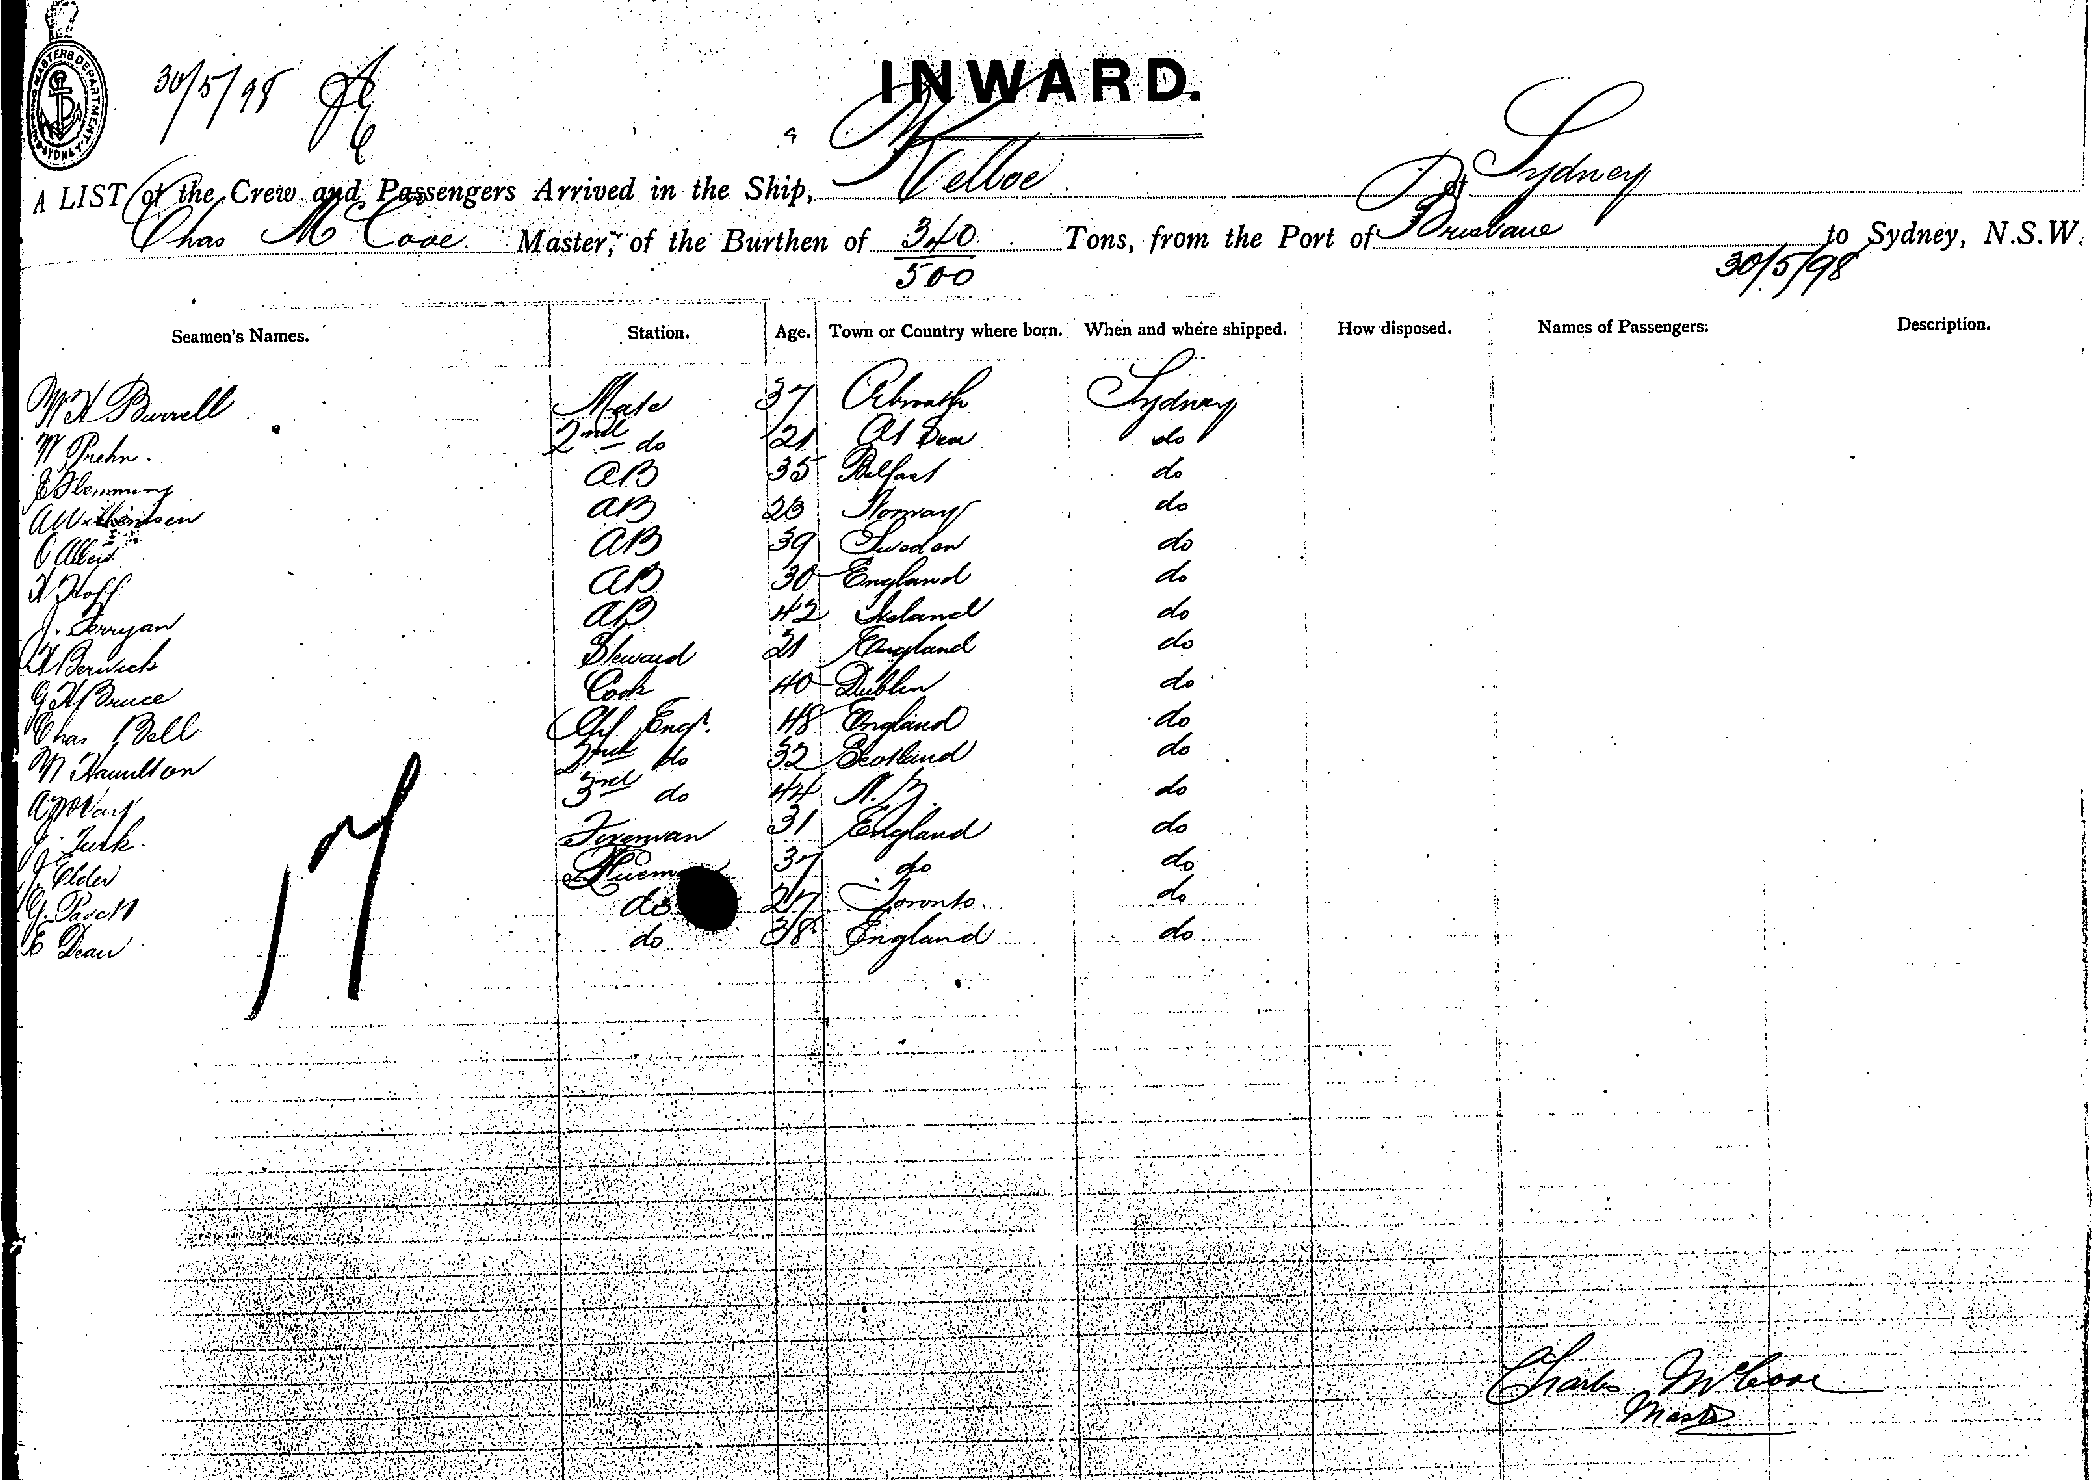 SHIPPING MASTERS DEPARTMENT SYDNEY
30/5/98
INWARD.
A LIST of the Crew and Passengers Arrived in the Ship, Kelloe of Sydney
Chas McCooe Master, of the Burthen of 340 Tons, from the Port of Brisbane to Sydney, N.S.W.
500 30/5/98
Seamen's Names. Station. Age. Town or Country where born. When and where shipped. How disposed. Names of Passengers: Description.
W H Burrell Mate 37 Abroath Sydney
W Prehn. 2nd do 21 At Sea do
E Flemming AB 35 Belfast do
A AB 23 Norway do
AB 39 Sweden do
H Hoff AB 30 England do
J. Gerryan AB 42 Ireland do
H Berwick Steward 21 England do
G H Bruce Cook 40 Dublin do
Chas Bell Chf Engr. 48 England do
W Hamilton 2nd do 32 Scotland do
3rd do 44 N. Z. do
J. Turk. Foreman 31 England do
J Elder 37 do do
G. do 27 Toronto. do
E Dean do 38 England do
17
Charles McCooe
Master